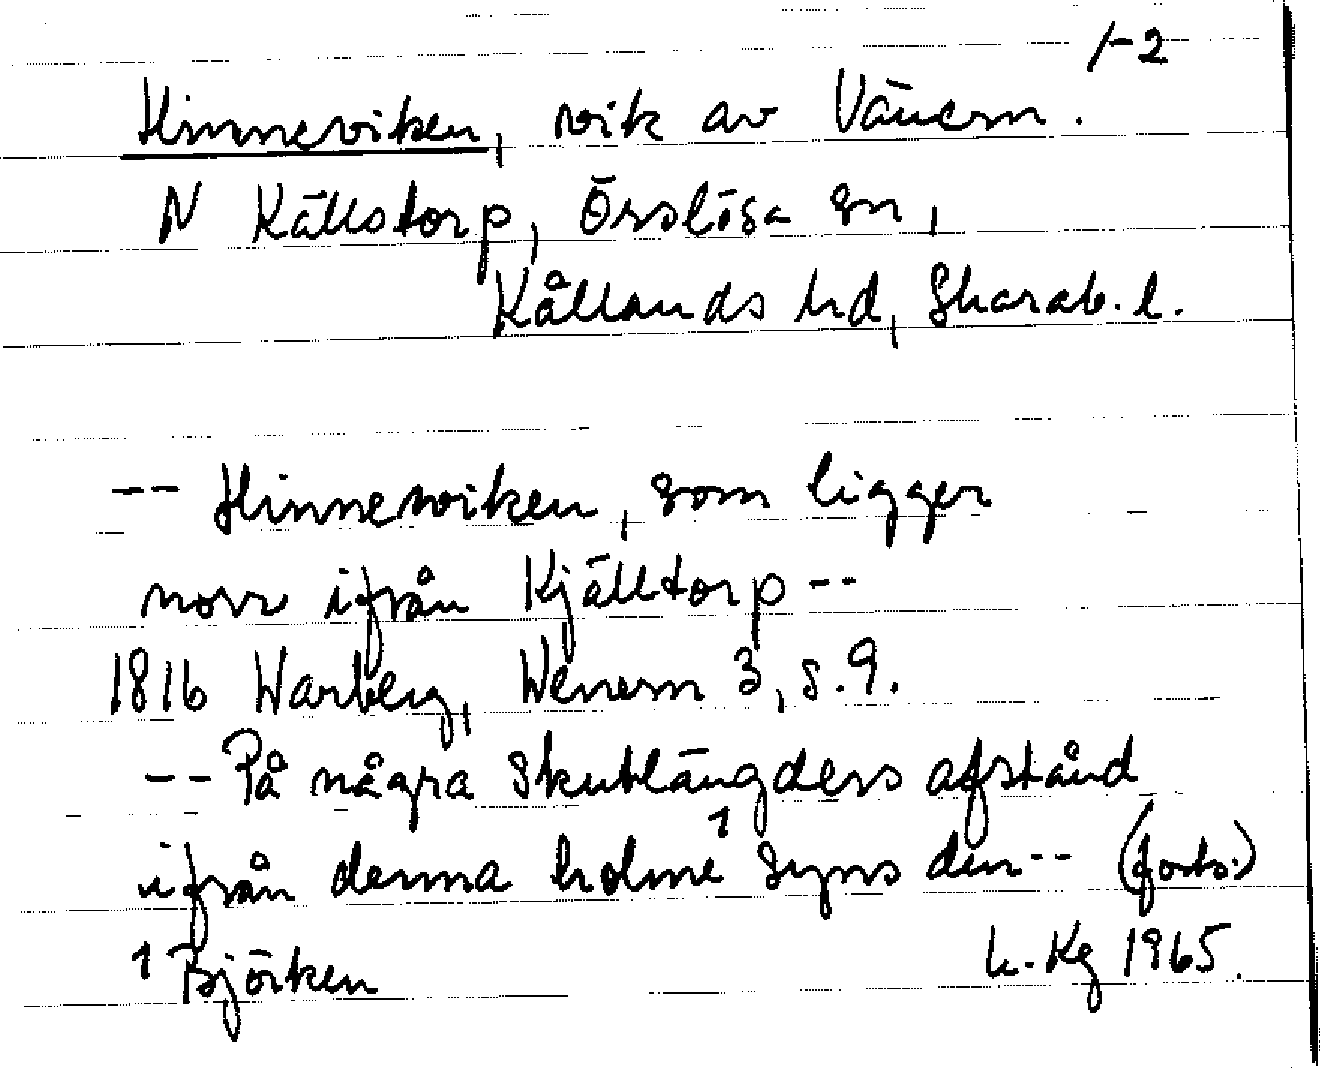 1-2
Hinneviken, vik av Vänern.
N Källstorp, Örslösa sn,
Kållands hd, Skarab. l.
-- Hinneviken, som ligger
norr ifrån Kjälltorp --
1816 Warberg, Wenern 3, s. 9.
-- På några skutlängders afstånd
ifrån denna holme¹ syns den -- (forts.)
¹ Björken
L. Kg 1965.